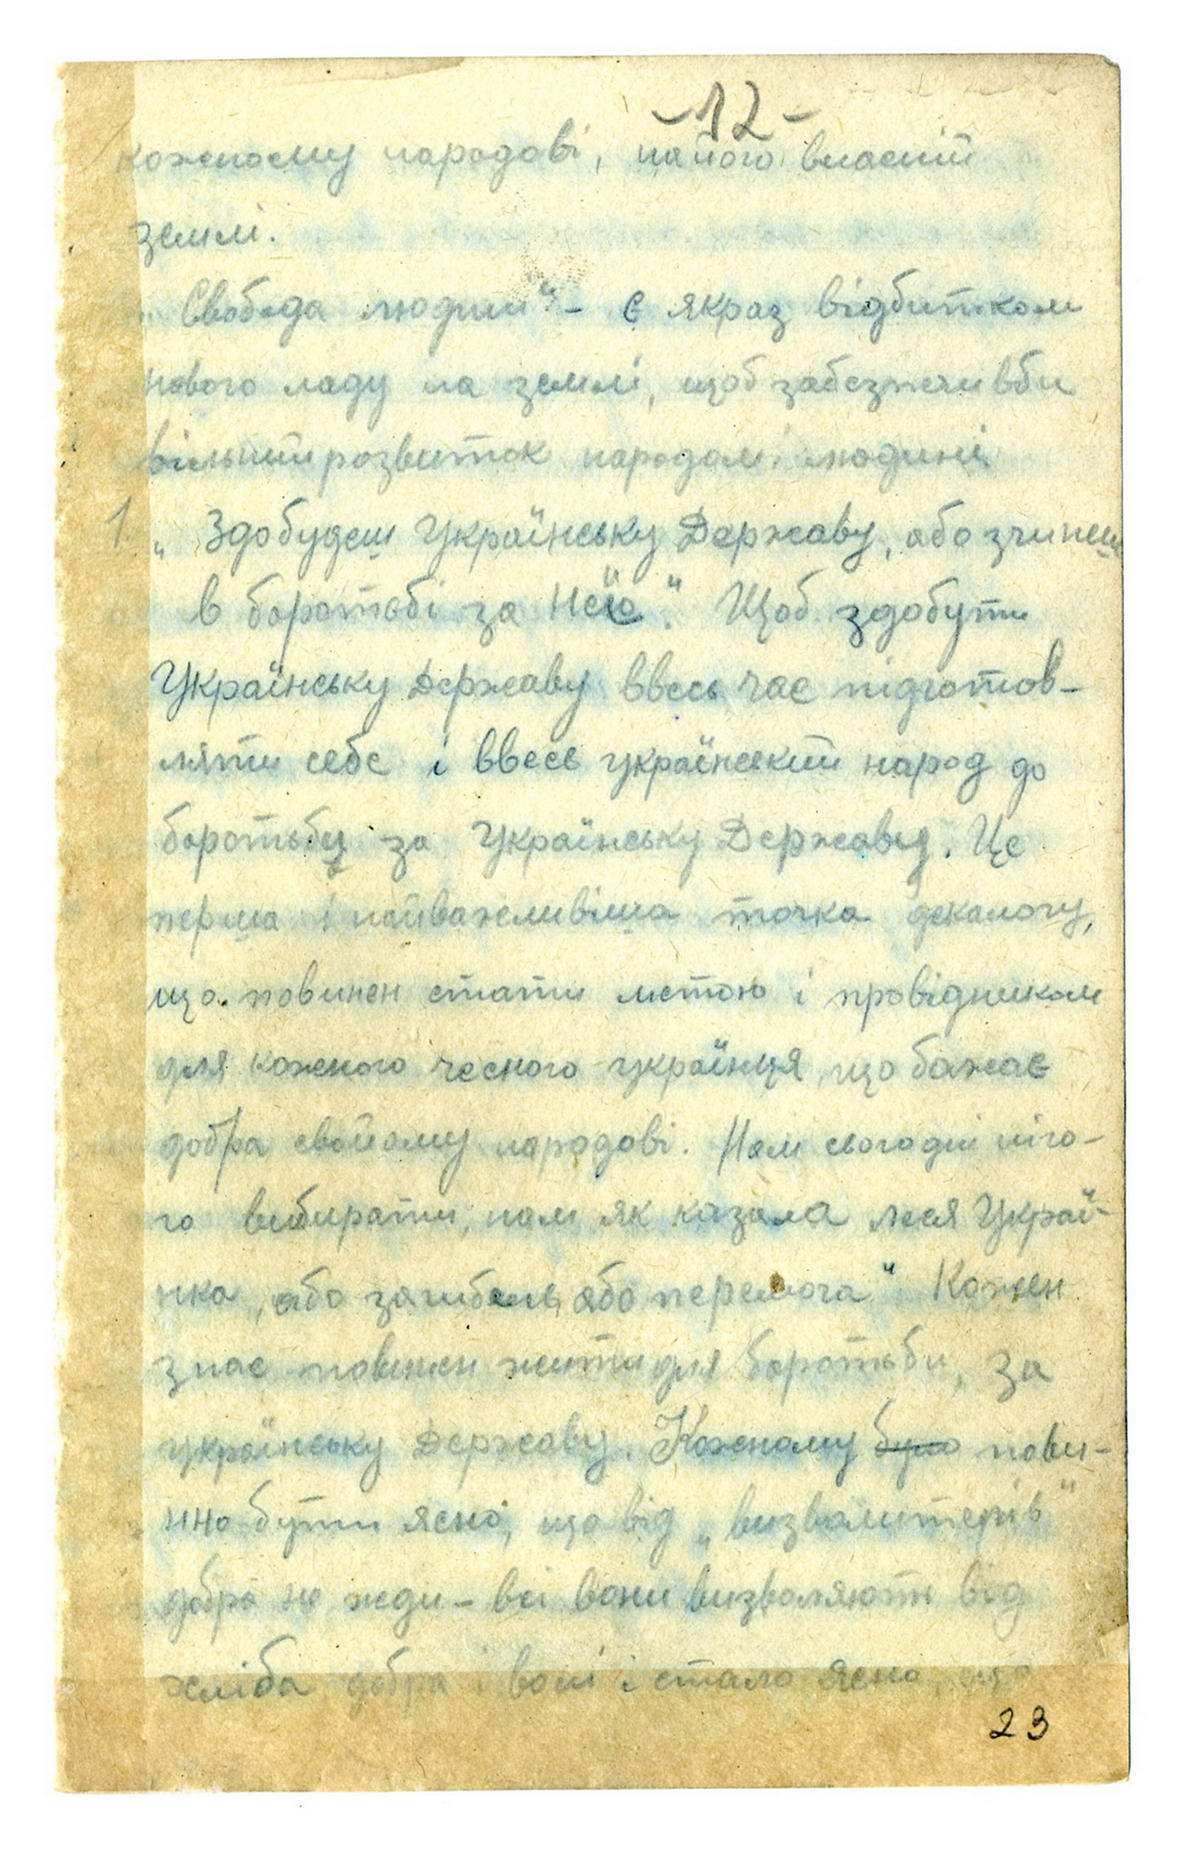 -12-
кожному народові, на його власній
землі.
Свобода людині" - є якраз відбитком
нового ладу на землі, щоб забезпечивби
вільний розвиток народам і людині
1. „Здобудеш Українську Державу, або згинеш
в боротьбі за Неїю". Щоб здобути
Українську Державу ввесь час підготов-
ляти себе і ввесь український народ до
боротьби за Українську Державу. Це
перша і найважливіша точка декалогу,
що повинен стати метою і провідником
для кожного чесного українця, що бажає
добра свойому народові. Нам сьогодні ніго-
го вибирати, нам, як казала Леся Украї-
нка „або загибель, або перемога". Кожен
знає повинен жити для боротьби, за
Українську Державу. Кожному було пови-
нно бути ясно, що від „визволитерів"
добра не жди - всі вони визволяють від
хліба добра і волі і стало ясно, що
23